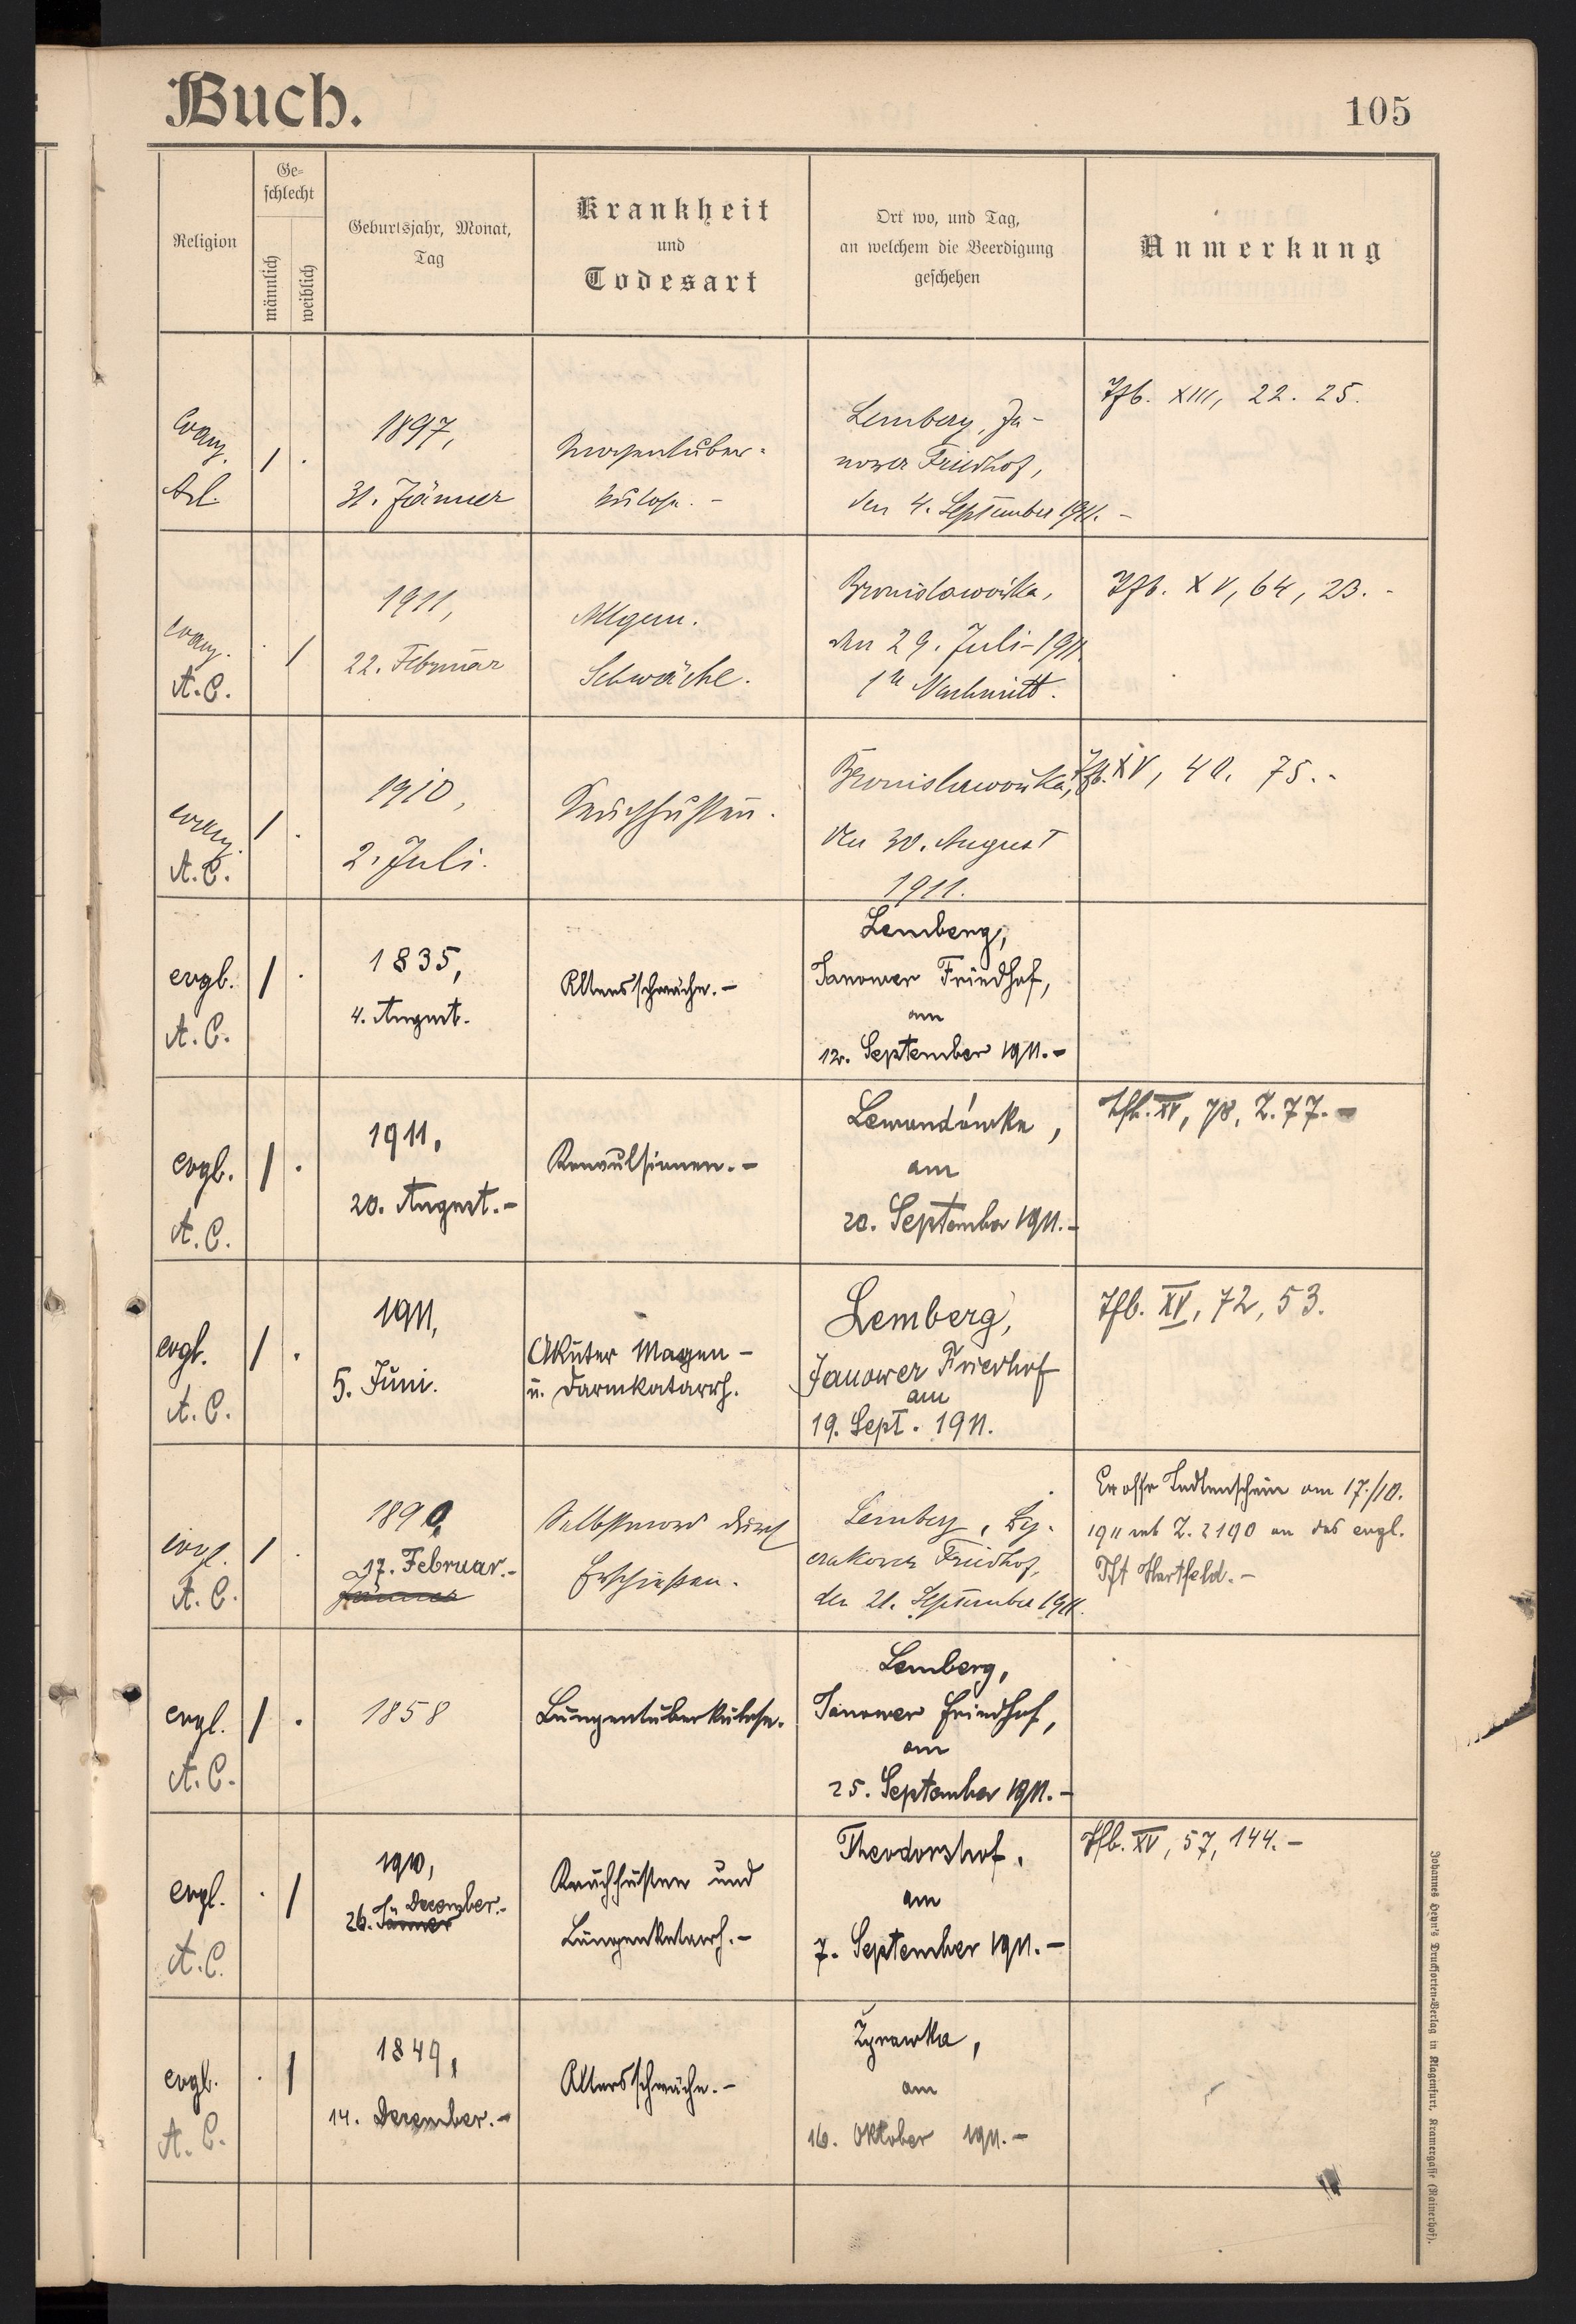 Buch.
105
Religion
Ge-
schlecht
männlich
weiblich
Geburtsjahr, Monat,
Tag
Krankheit
und
Todesart
Ort wo, und Tag,
an welchem die Beerdigung
geschehen
Anmerkung
evang.
1
.
1897,
31. Jänner
Lemberg, Ja-
nower Friedhof,
den 4. September 1911. -
Tfb. XIII, 22. 25.
evang.
A. C.
.
1
1911,
22. Februar
Allgem.
Schwäche.
Bronislawówka,
den 29. Juli 1911
1h Nachmitt.
Tfb. XV, 64, 23. -
evang.
A. C.
1
.
1910,
2. Juli.
Keuchhusten.
Bronislawówka,
den 30. August
1911.
Tfb. XV, 40. 75. -
evgl.
A. C.
1
.
1835,
4. August.
Altersschwäche. -
Lemberg,
Janower Friedhof,
am
12. September 1911. -
evgl.
A. C.
1
.
1911,
20. August. -
Konvulsionen. -
Lewandówka,
am
20. September 1911. -
Tfb. XV, 78, Z. 77. -
evgl.
A. C.
1
.
1911,
5. Juni.
Akuter Magen -
u. Darmkatarrh.
Lemberg,
Janower Friedhof
am
19. Sept. 1911.
Tfb. XV, 72, 53.
evgl.
A. C.
1
.
1890,
17. Februar. -
Jänner
Selbstmord durch
Erschießen.
Lemberg, Ly-
czakower Friedhof,
den 21. September 1911.
Ex offo Todtenschein am 17./10.
1911 sub Z. 2190 an das evgl.
Pft Hartfeld. -
evgl.
A. C.
1
.
1858
Lungentuberkulose.
Lemberg,
Janower Friedhof,
am
25. September 1911. -
evgl.
A. C.
.
1
1910,
December. -
26. Jänner
Keuchhusten und
Lungenkatarrh. -
Theodorshof,
am
7. September 1911. -
Tfb. XV, 57, 144. -
evgl.
A. C.
.
1
1849,
14. Dezember. -
Altersschwäche. -
Zyrawka,
am
16. Oktober 1911. -
Johannes Heyn's Drucksorten-Verlag in Klagenfurt, Kramergasse (Rainerhof).